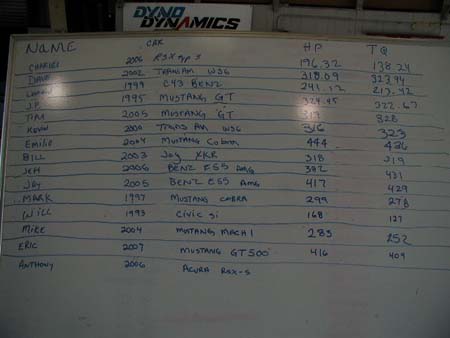 DYNO DYNAMICS
NAME CAR HP TQ
CHARLES 2006 RSX typ S 196.32 138.24
DAVE 2002 TRANSAM WS6 318.09 323.94
1999 C43 BENZ 241.12 213.42
J.P. 1995 MUSTANG GT 324.95 322.67
TIM 2005 MUSTANG GT 317 328
KEVIN 2000 TRANS AM WS6 316 323
Emilio 2004 MUSTANG Cobra 444 436
BILL 2003 Jag XKR 318 319
JEH 2006 BENZ E55 AMG 382 431
JAY 2005 BENZ E55 AMG 417 429
MARK 1997 MUSTANG COBRA 299 278
Will 1993 CIVIC Si 168 127
MIKE 2004 MUSTANG MACH 1 283 252
ERIC 2007 MUSTANG GT500 416 409
ANTHONY 2006 ACURA RSX-S